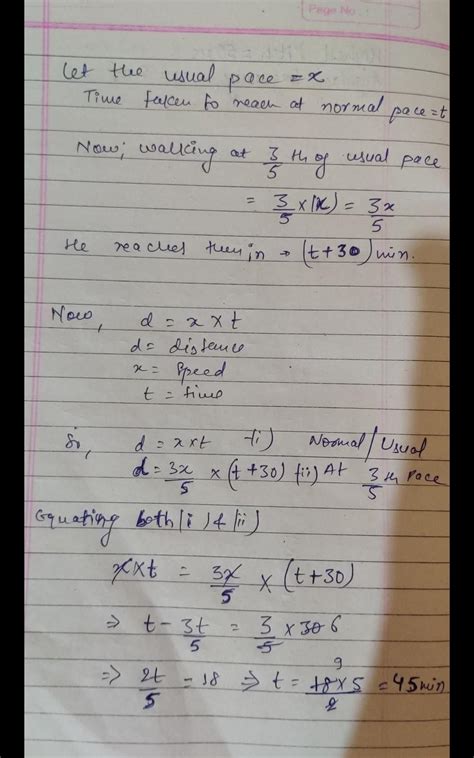 Page No.
Let the usual pace = x
Time taken to reach at normal pace = t
Now; walking at 3/5 th of usual pace
= 3/5 × (x) = 3x/5
He reaches then in → (t+30) min.
Now, d = x × t
d = distance
x = Speed
t = time
So, d = x×t -(i) Normal / Usual
d = 3x/5 × (t+30) (ii) At 3/5 th Pace
Equating both (i) & (ii)
x×t = 3x/5 × (t+30)
⇒ t - 3t/5 = 3/5 × 30 6
⇒ 2t/5 = 18 ⇒ t = 18 9 × 5/2 = 45 min